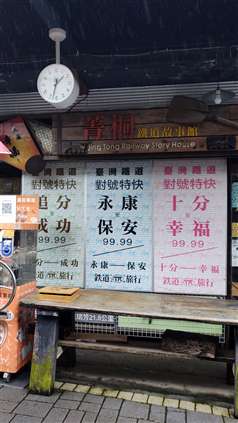 菁桐 鐵道故事館
Jing Tong Railway Story House
臺灣鐵道
對號特快
追分
成功
99.99
追分——成功
鐵道 旅行
臺灣鐵道
對號特快
永康
保安
99.99
永康——保安
鐵道 旅行
臺灣鐵道
對號特快
十分
幸福
99.99
十分——幸福
鐵道 旅行
瑞芳21.8公里